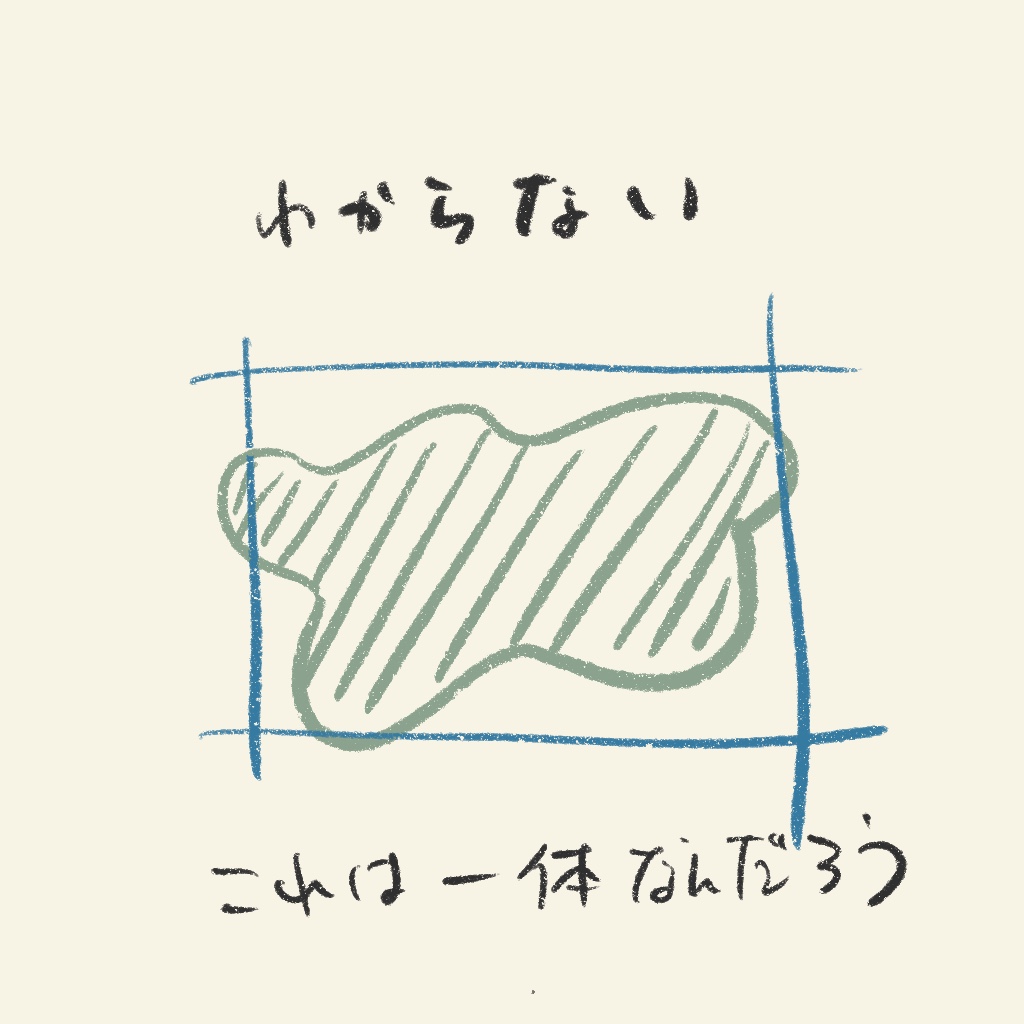 わからない
これは一体なんだろう